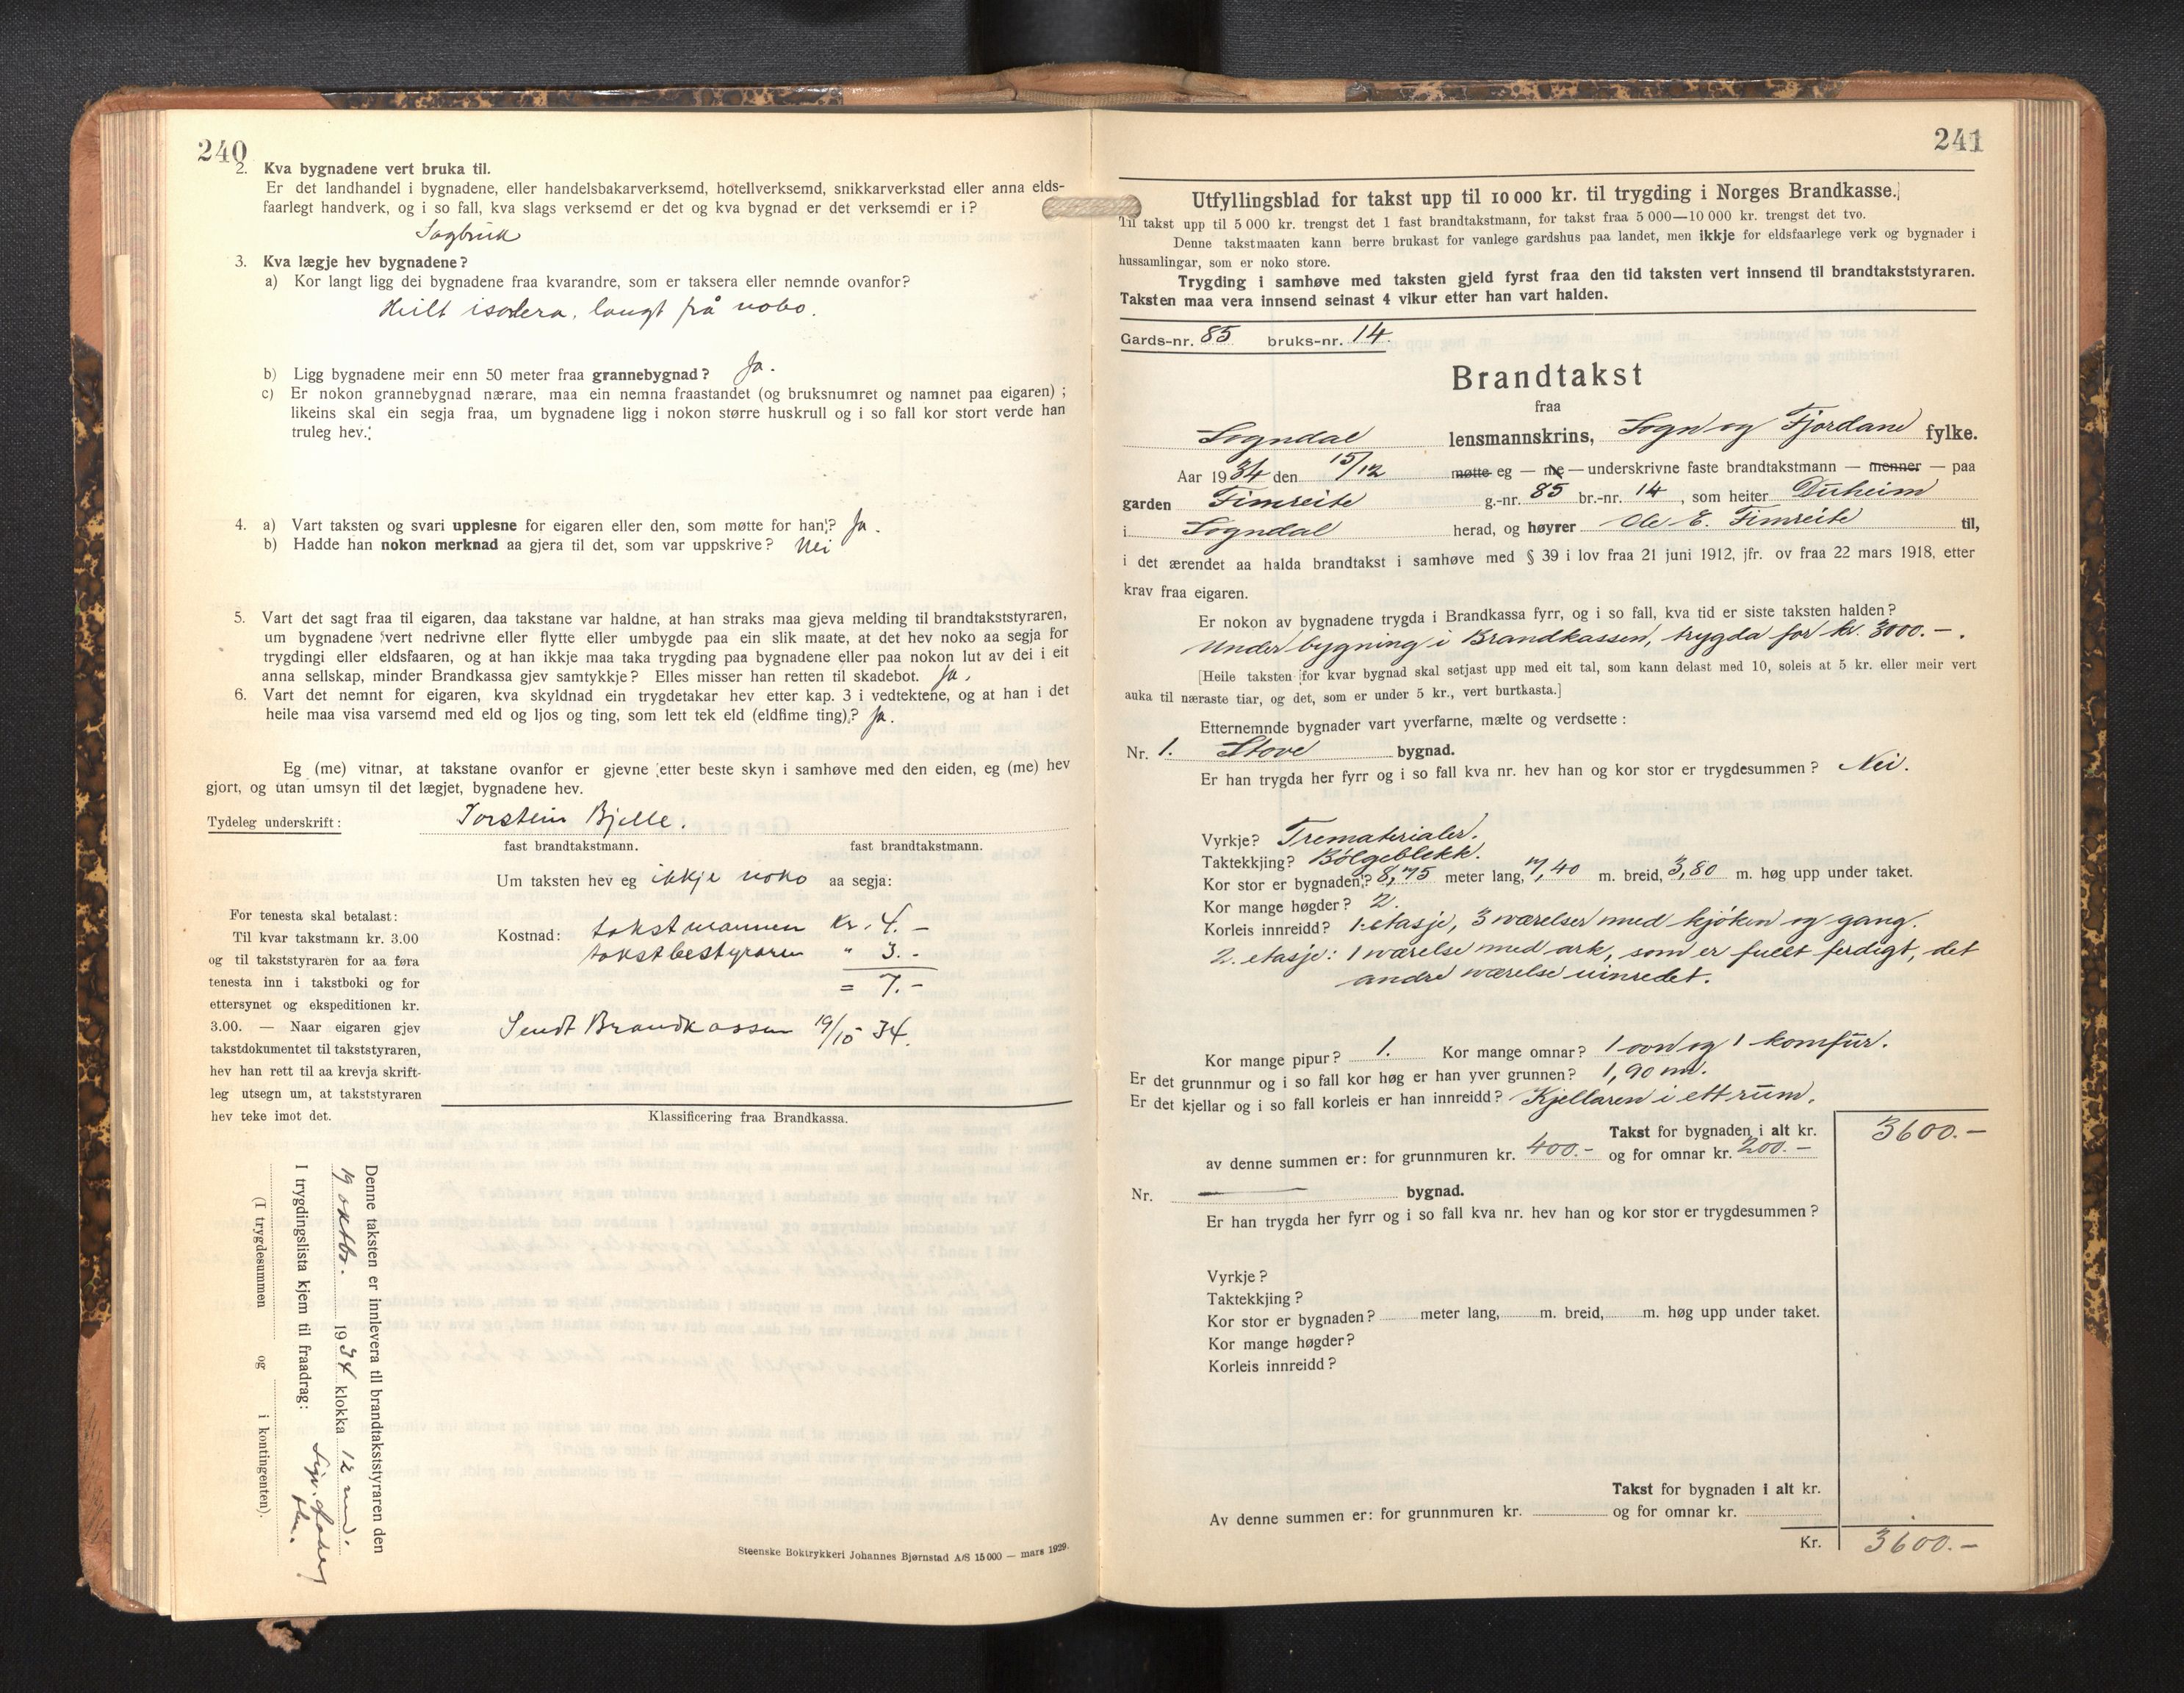 240
2. Kva bygnadene vert bruka til.
Er det landhandel i bygnadene, eller handelsbakarverksemd, hotellverksemd, snikkarverkstad eller anna elds-
faarlegt handverk, og i so fall, kva slags verksemd er det og kva bygnad er det verksemdi er i?
Sagbruk
3. Kva lægje hev bygnadene?
a) Kor langt ligg dei bygnadene fraa kvarandre, som er taksera eller nemnde ovanfor?
Heilt isolera, langt frå nobo.
b) Ligg bygnadene meir enn 50 meter fraa grannebygnad? Ja.
c) Er nokon grannebygnad nærare, maa ein nemna fraastandet (og bruksnumret og namnet paa eigaren) ;
likeins skal ein segja fraa, um bygnadene ligg i nokon større huskrull og i so fall kor stort verde han
truleg hev.
4. a) Vart taksten og svari upplesne for eigaren eller den, som møtte for han? Ja.
b) Hadde han nokon merknad aa gjera til det, som var uppskrive? Nei
5. Vart det sagt fraa til eigaren, daa takstane var haldne, at han straks maa gjeva melding til brandtakststyraren,
um bygnadene vert nedrivne eller flytte eller umbygde paa ein slik maate, at det hev noko aa segja for
trygdingi eller eldsfaaren, og at han ikkje maa taka trygding paa bygnadene eller paa nokon lut av dei i eit
anna sellskap, minder Brandkassa gjev samtykkje? Elles misser han retten til skadebot. Ja.
6. Vart det nemnt for eigaren, kva skyldnad ein trygdetakar hev etter kap. 3 i vedtektene, og at han i det
heile maa visa varsemd med eld og ljos og ting, som lett tek eld (eldfime ting)? Ja.
Eg (me) vitnar, at takstane ovanfor er gjevne etter beste skyn i samhøve med den eiden, eg (me) hev
gjort, og utan umsyn til det lægjet, bygnadene hev.
Tydeleg underskrift: Torstein Bjelle.
fast brandtakstmann. fast brandtakstmann.
Um taksten hev eg ikkje noko aa segja:
Kostnad: takstmannen kr. 4.-
takstbestyraren " 3.-
= 7.-
Sendt Brandkassen 19/10 34.
For tenesta skal betalast:
Til kvar takstmann kr. 3.00
og til takststyraren for aa føra
tenesta inn i takstboki og for
ettersynet og ekspeditionen kr.
3.00. — Naar eigaren gjev
takstdokumentet til takststyraren,
hev han rett til aa krevja skrift-
leg utsegn um, at takststyraren
hev teke imot det.
Klassificering fraa Brandkassa.
Denne taksten er innlevera til brandtakststyraren den
19 oktbr. 1934 klokka 12 md.
I trygdingslista kjem til fraadrag:
(I trygdesummen og i kontingenten).
Steenske Boktrykkeri Johannes Bjørnstad A/S 15 000 — mars 1929.
241
Utfyllingsblad for takst upp til 10 000 kr. til trygding i Norges Brandkasse.
Til takst upp til 5 000 kr. trengst det 1 fast brandtakstmann, for takst fraa 5 000—10 000 kr. trengst det tvo.
Denne takstmaaten kann berre brukast for vanlege gardshus paa landet, men ikkje for eldsfaarlege verk og bygnader i
hussamlingar, som er noko store.
Trygding i samhøve med taksten gjeld fyrst fraa den tid taksten vert innsend til brandtakststyraren.
Taksten maa vera innsend seinast 4 vikur etter han vart halden.
Gards-nr. 85 bruks-nr. 14.
Brandtakst
fraa
Sogndal lensmannskrins, Sogn og Fjordane fylke.
Aar 1934 den 15/12 møtte eg — me — underskrivne faste brandtakstmann — menner — paa
garden Fimreite g.-nr. 85 br.-nr. 14, som heiter Duheim
i Sogndal herad, og høyrer Ole E. Fimreite til,
i det ærendet aa halda brandtakst i samhøve med § 39 i lov fraa 21 juni 1912, jfr. ov fraa 22 mars 1918, etter
krav fraa eigaren.
Er nokon av bygnadene trygda i Brandkassa fyrr, og i so fall, kva tid er siste taksten halden?
Under bygning i Brandkassen, trygda for kr. 3000.-.
[Heile taksten for kvar bygnad skal setjast upp med eit tal, som kann delast med 10, soleis at 5 kr. eller meir vert
auka til næraste tiar, og det, som er under 5 kr., vert burtkasta.]
Etternemnde bygnader vart yverfarne, mælte og verdsette :
Nr. 1. Stove bygnad.
Er han trygda her fyrr og i so fall kva nr. hev han og kor stor er trygdesummen? Nei.
Vyrkje? Trematerialer.
Taktekkjing? Bölgeblekk.
Kor stor er bygnaden? 8,75 meter lang, 7,40 m. breid, 3,80 m. høg upp under taket.
Kor mange høgder? 2.
Korleis innreidd? 1 etasje, 3 værelser med kjöken og gang.
2. etasje: 1 værelse med ark, som er fullt ferdigt, det
andre værelse uinredet.
Kor mange pipur? 1. Kor mange omnar? 1 ovn og 1 komfur.
Er det grunnmur og i so fall kor høg er han yver grunnen? 1,90 m.
Er det kjellar og i so fall korleis er han innreidd? Kjellaren i ett rum.
Takst for bygnaden i alt kr. 3600.-
av denne summen er: for grunnmuren kr. 400.- og for omnar kr. 200.-
Nr. — bygnad.
Er han trygda her fyrr og i so fall kva nr. hev han og kor stor er trygdesummen?
Vyrkje?
Taktekkjing?
Kor stor er bygnaden? meter lang, m. breid, m. høg upp under taket.
Kor mange høgder?
Korleis innreidd?
Takst for bygnaden i alt kr.
Av denne summen er: for grunnmuren kr. og for omnar kr.
Kr. 3600.-